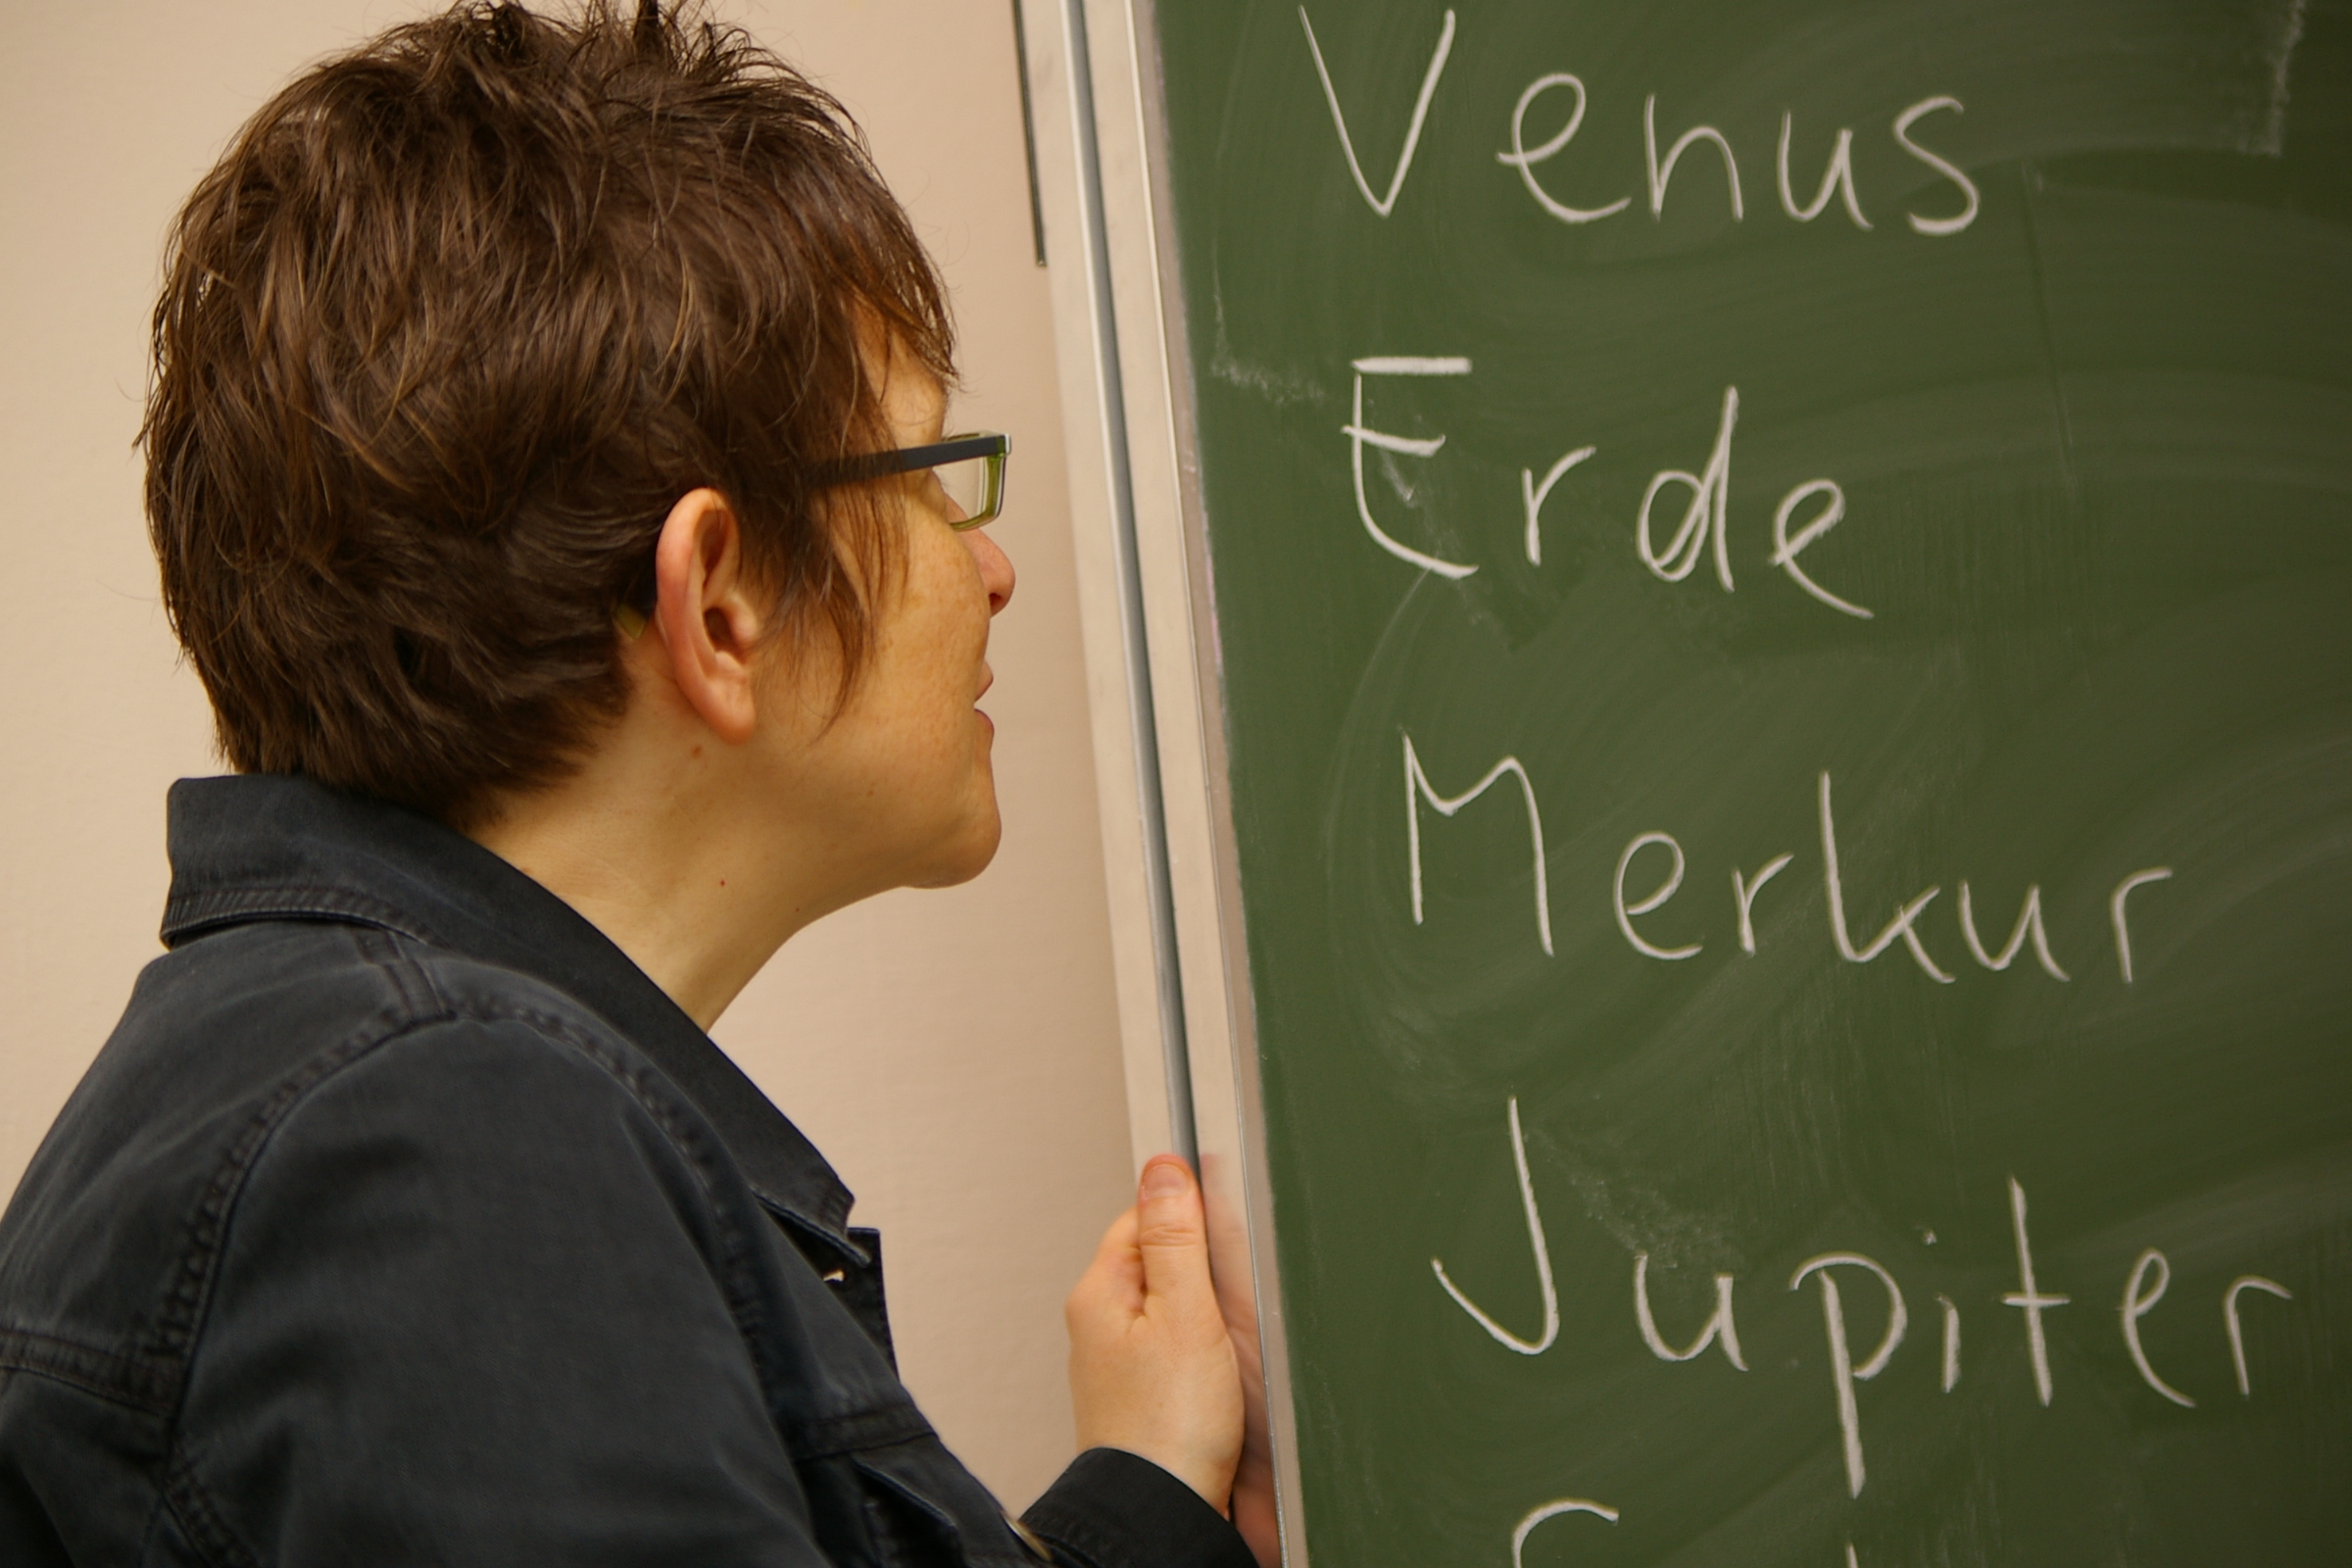 Venus
Erde
Merkur
Jupiter